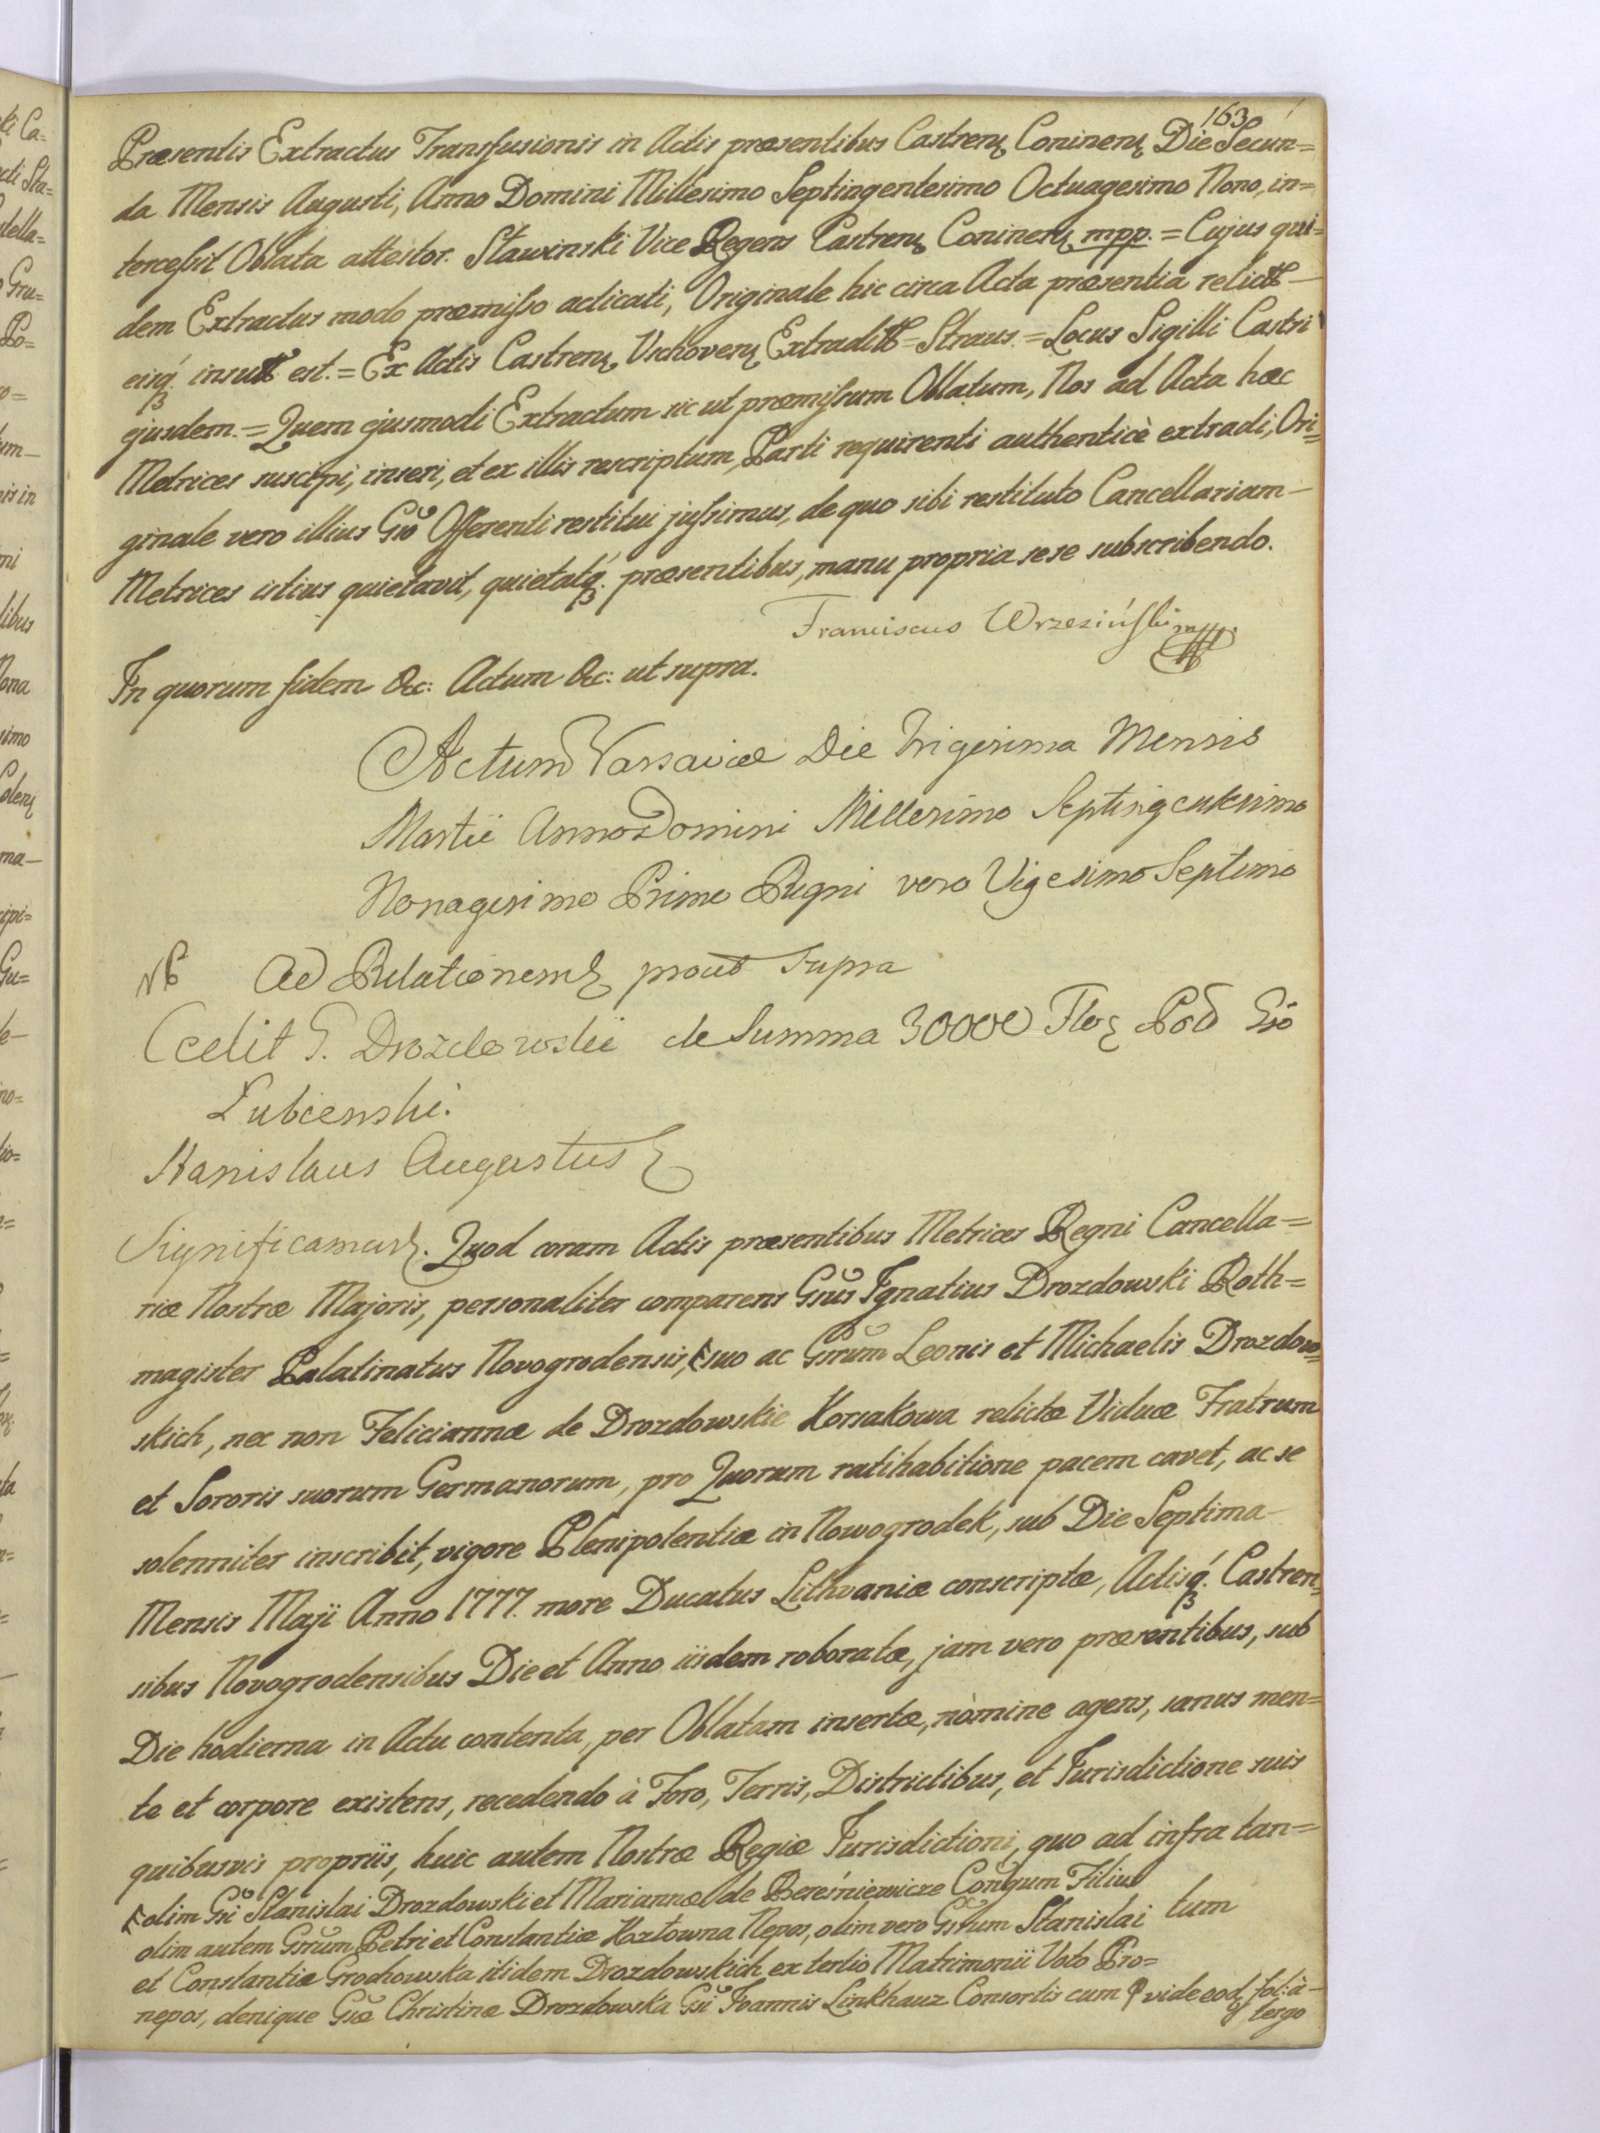 163
Præsentis Extractus Transfusionis in Actis præsentibus Castren. Coninen. Die Secun=
da Mensis Augusti, Anno Domini Millesimo Septingentesimo Octuagesimo Nono, in=
tercessit Oblata attestor. Sławinski Vice Regens Castren. Coninen. mpp. = Cujus qui=
dem Extractus modo præmisso acticati, Originale hic circa Acta præsentia relict
eisq. insut est. = Ex Actis Castren. Vschoven. Extradit = Straus. = Locus Sigilli Castri
ejusdem. = Quem ejusmodi Extractum sic ut præmissum Oblatum, Nos ad Acta hæc
Metrices suscipi, inseri, et ex illis rescriptum Parti requirenti authenticè extradi, Ori=
ginale vero illius Gso Offerenti restitui jussimus, de quo sibi restituto Cancellariam
Metrices istius quietavit, quietatq. præsentibus, manu propria sese subscribendo.
Franciscus Wrzesiński mpp.
In quorum fidem &c: Actum &c: ut supra.
Actum Varsaviæ Die Trigesima Mensis
Martii Anno Domini Millesimo Septingentesimo
Nonagesimo Primo Regni vero Vigesimo Septimo
Ad Relationem prout supra
Cedit G. Drozdowski de Summa 30000 Flor. Pol Gso
Lubienski.
Stanislaus Augustus
Significamus. Quod coram Actis præsentibus Metrices Regni Cancella=
riæ Nostræ Majoris, personaliter comparens Gsus Ignatius Drozdowski Roth=
magister Palatinatus Novogrodensis, suo ac Gsrum Leonis et Michaelis Drozdow=
skich, nec non Feliciannæ de Drozdowskie Korsakowa relictæ Viduæ Fratrum
et Sororis suorum Germanorum, pro Quorum ratihabitione pacem cavet, ac se
solenniter inscribit, vigore Plenipotentiæ in Nowogrodek, sub Die Septima
Mensis Maji Anno 1777. more Ducatus Lithvaniæ conscriptæ, Actisq. Castren=
sibus Novogrodensibus Die et Anno iisdem roboratæ, jam vero præsentibus, sub
Die hodierna in Actu contenta, per Oblatam insertæ, nomine agens, sanus men=
te et corpore existens, recedendo à Foro, Terris, Districtibus, et Jurisdictione suis
quibusvis propriis, huic autem Nostræ Regiæ Jurisdictioni, quo ad infra tan=
tum
olim Gsi Stanislai Drozdowski et Mariannæ de Bereśniewicze Congum Filius
olim autem Gsrum Petri et Constantiæ Kozłowna Nepos, olim vero Gsrum Stanislai
et Constantiæ Grochowska itidem Drozdowskich ex tertio Matrimonii Voto Pro=
nepos, denique Gsæ Christinæ Drozdowska Gsi Joannis Linkhauz Consortis cum vide eod. fol: à
tergo